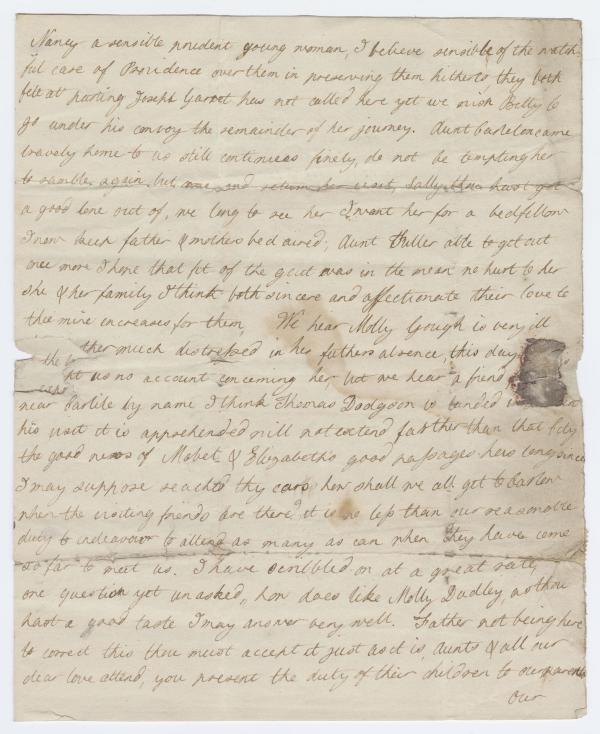 Nancy a sensible prudent young woman, I believe sensible of the watch
ful care of Providence over them in preserving them hitherto they both
felt at parting Joseph Garret has not called here yet we wish Betty to
go under his convoy the remainder of her journey. Aunt Carleton came
bravely home to us still continues finely, do not be tempting her
to ramble again but and return her visit, Sally thou hast got
a good one out of, we long to see her I want her for a bedfellow
I now keep father & mothers bed aired, Aunt Fuller able to get out
once more I hope that fit of the gout was in the mean no hurt to her
she & her family I think both sincere and affectionate their love to
thee mine increases for them, We hear Molly Gough is very ill
the ther much distressed in her fathers absence, this day
ht us no account concerning her but we hear a friend
near Carlile by name I think Thomas Dodgson is landed
his visit it is apprehended will not extend farther than that City
the good news of Mabel & Elizabeths good passages hers long since
I may suppose reached thy ears how shall we all get to Carlow
when the visiting friends are there, it is no less than our reasonable
duty to indeavour to attend as many as can when they have come
so far to meet us. I have scribbled on at a great rate,
one question yet unasked, how does like Molly Dudley, as thou
hast a good taste I may answer very well. Father not being here
to correct this thou must accept it just as it is, aunts & all our
dear love attend, you present the duty of their children to our parents
Our